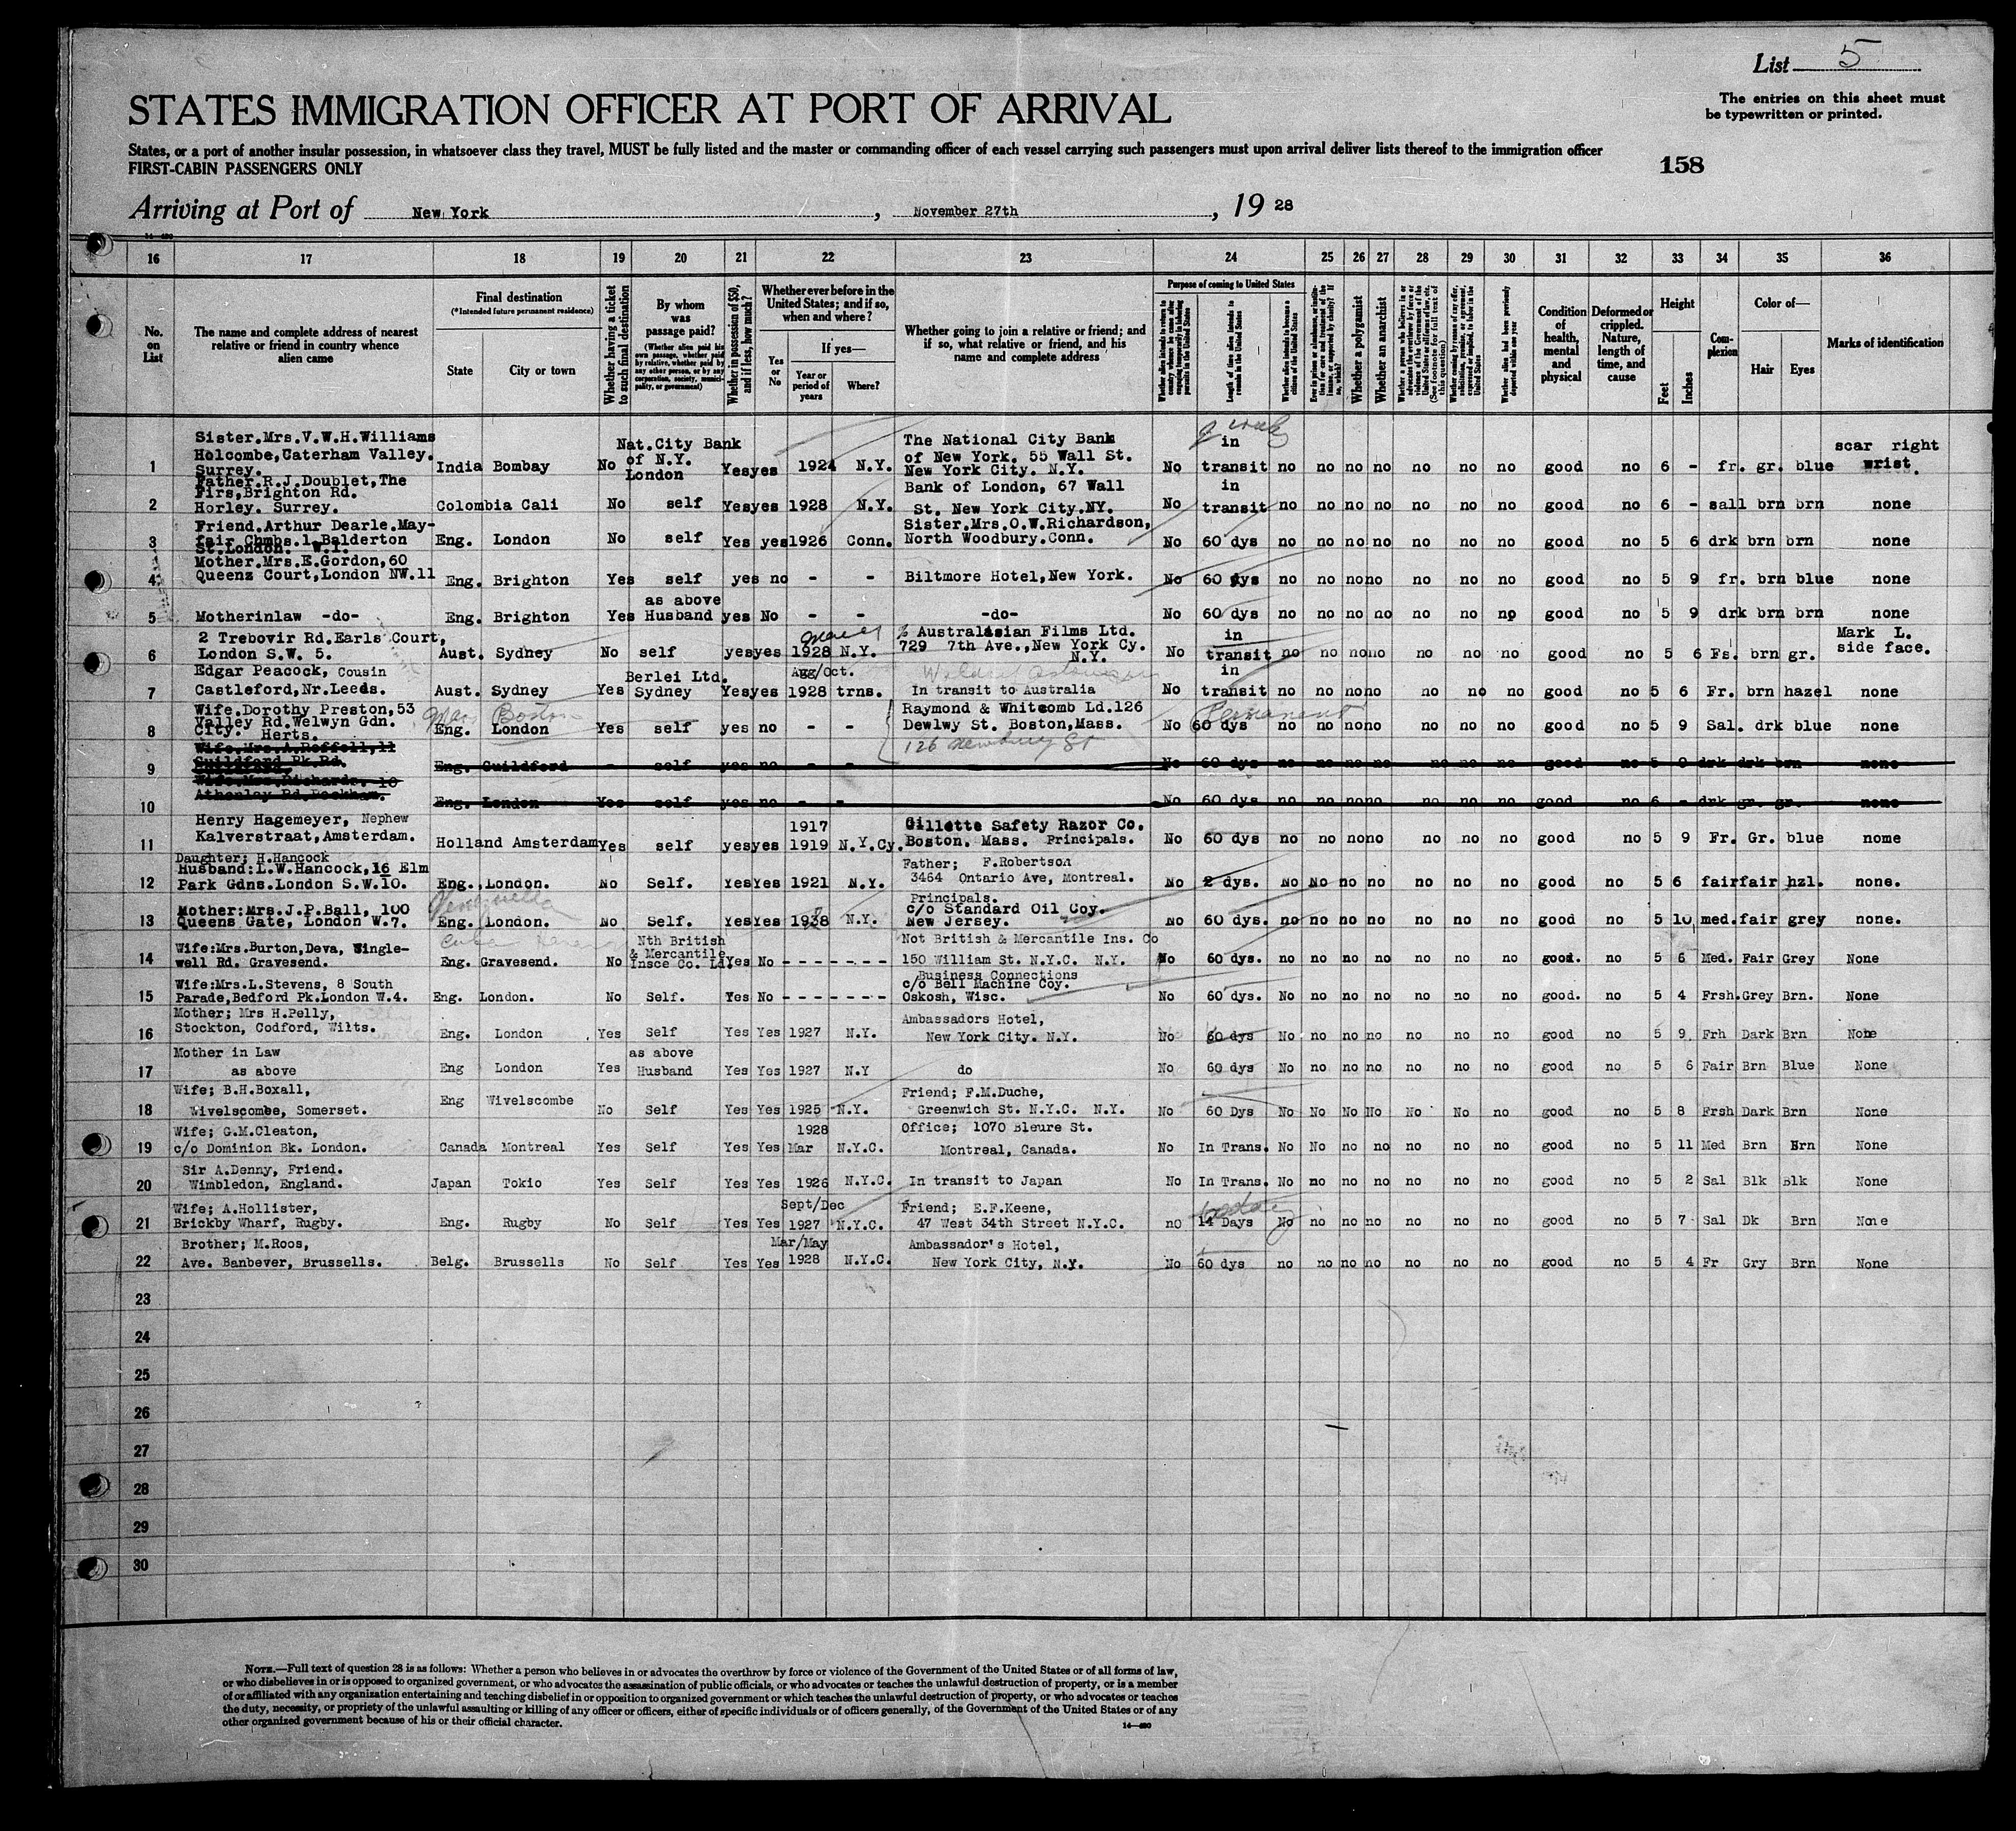 List 5
The entries on this sheet must
be typewritten or printed.
STATES IMMIGRATION OFFICER AT PORT OF ARRIVAL
States, or a port of another insular possession, in whatsoever class they travel, MUST be fully listed and the master or commanding officer of each vessel carrying such passengers must upon arrival deliver lists thereof to the immigration officer
FIRST-CABIN PASSENGERS ONLY
158
Arriving at Port of New York, November 27th, 19 28
16 17 18 19 20 21 22 23 24 25 26 27 28 29 30 31 32 33 34 35 36
No. on List
The name and complete address of nearest relative or friend in country whence alien came
Final destination
(*Intended future permanent residence)
State
City or town
Whether having a ticket to such final destination
By whom was passage paid?
(Whether alien paid his own passage, whether paid by relative, whether paid by any other person, or by any corporation, society, municipality, or government)
Whether in possession of $50, and if less, how much?
Whether ever before in the United States; and if so, when and where?
Yes or No
If yes—
Year or period of years
Where?
Whether going to join a relative or friend; and if so, what relative or friend, and his name and complete address
Purpose of coming to United States
Whether alien intends to return to country whence he came after engaging temporarily in laboring pursuits in the United States
Length of time alien intends to remain in the United States
Whether alien intends to become a citizen of the United States
Whether a polygamist
Whether an anarchist
Whether alien had been previously deported within one year
Condition of health, mental and physical
Deformed or crippled. Nature, length of time, and cause
Height
Feet
Inches
Complexion
Color of—
Hair
Eyes
Marks of identification
Sister.Mrs.V.W.H.Williams
Holcombe,Caterham Valley.
Surrey.
1 India Bombay No Nat.City Bank of N.Y. London Yes yes 1924 N.Y. The National City Bank of New York. 55 Wall St. New York City. N.Y. No in transit no no no no no no no good no 6 - fr. gr. blue scar right wrist.
Father.R.J.Doublet,The
Firs,Brighton Rd.
Horley. Surrey.
2 Colombia Cali No self Yes yes 1928 N.Y. Bank of London, 67 Wall St. New York City.NY. No in transit no no no no no no no good no 6 - sall brn brn none
Friend.Arthur Dearle.May-
fair Chmbs.1.Balderton
St.London. W.1.
3 Eng. London No self Yes yes 1926 Conn. Sister.Mrs.O.W.Richardson, North Woodbury.Conn. No 60 dys no no no no no no no good no 5 6 drk brn brn none
Mother.Mrs.E.Gordon,60
Queens Court,London NW.11
4 Eng. Brighton Yes self yes no - - Biltmore Hotel,New York. No 60 dys no no no no no no no good no 5 9 fr. brn blue none
5 Motherinlaw -do- Eng. Brighton Yes as above Husband yes No - - -do- No 60 dys no no no no no no no good no 5 9 drk brn brn none
2 Trebovir Rd.Earls Court,
London S.W. 5.
6 Aust. Sydney No self yes yes 1928 N.Y. % Australasian Films Ltd. 729 7th Ave.,New York Cy. N.Y. No in transit no no no no no no no good no 5 6 Fs. brn gr. Mark L. side face.
Edgar Peacock, Cousin
Castleford,Nr.Leeds.
7 Aust. Sydney Yes Berlei Ltd. Sydney Yes yes Agg/Oct. 1928 trns. In transit to Australia No in transit no no no no no no no good no 5 6 Fr. brn hazel none
Wife.Dorothy Preston,53
Valley Rd.Welwyn Gdn.
City. Herts.
8 Mass Boston Eng. London Yes self yes no - - Raymond & Whitcomb Ld.126 Dewlwy St. Boston,Mass. 126 Newbury St No 60 dys Permanent no no no no no no no good no 5 9 Sal. drk blue none
Wife.Mrs.A.Roffell,11
Guildford Pk Rd.
9 Eng. Guildford - self yes no - - No 60 dys no no no no no no no good no 5 9 drk drk brn none
Wife.Mrs.Richards. 10
Athenlay Rd.Peckham.
10 Eng. London Yes self yes no - - No 60 dys no no no no no no no good no 6 - drk gr. gr. none
Henry Hagemeyer, Nephew
Kalverstraat,Amsterdam.
11 Holland Amsterdam Yes self yes yes 1917 1919 N.Y.Cy. Gillette Safety Razor Co. Boston. Mass. Principals. No 60 dys no no no no no no no good no 5 9 Fr. Gr. blue nome
Daughter; H.Hancock
Husband:L.W.Hancock,16 Elm
Park Gdns.London S.W.10.
12 Eng. London. No Self. Yes Yes 1921 N.Y. Father; F.Robertson 3464 Ontario Ave, Montreal. No 2 dys. No No no no no no no good no 5 6 fair fair hzl. none.
Mother:Mrs.J.P.Ball, 100
Queens Gate, London W.7.
13 Eng. London. No Self. Yes Yes 1928 N.Y. Principals. c/o Standard Oil Coy. New Jersey. No 60 dys. no no no no no no no good no 5 10 med. fair grey none.
Wife:Mrs.Burton,Deva, Wingle-
well Rd. Gravesend.
14 Eng. Gravesend. No Nth British & Mercantile Insce Co. Ld. Yes No - - - - - - - Not British & Mercantile Ins. Co 150 William St. N.Y.C. N.Y. No 60 dys. no no no no no no no good. no 5 6 Med. Fair Grey None
Wife:Mrs.L.Stevens, 8 South
Parade,Bedford Pk.London W.4.
15 Eng. London. No Self. Yes No - - - - - - - Business Connections c/o Bell Machine Coy. Oskosh, Wisc. No 60 dys. No no no no no no no good. no 5 4 Frsh. Grey Brn. None
Mother; Mrs H.Pelly,
Stockton, Codford, Wilts.
16 Eng. London Yes Self Yes Yes 1927 N.Y. Ambassadors Hotel, New York City. N.Y. No 60 dys No no no no no no no good no 5 9 Frh Dark Brn None
Mother in Law
as above
17 Eng London Yes as above Husband Yes Yes 1927 N.Y do No 60 dys No no no no no no no good no 5 6 Fair Brn Blue None
Wife; B.H.Boxall,
Wivelscombe, Somerset.
18 Eng Wivelscombe No Self Yes Yes 1925 N.Y. Friend; F.M.Duche, Greenwich St. N.Y.C. N.Y. No 60 Dys No No No No No No no good no 5 8 Frsh Dark Brn None
Wife; G.M.Cleaton,
c/o Dominion Bk. London.
19 Canada Montreal Yes Self Yes Yes 1928 Mar N.Y.C. Office; 1070 Bleure St. Montreal, Canada. No In Trans. No No no no no no no good no 5 11 Med Brn Brn None
Sir A.Denny, Friend.
Wimbledon, England.
20 Japan Tokio Yes Self Yes Yes 1926 N.Y.C. In transit to Japan No In Trans. No no no no no no no good no 5 2 Sal Blk Blk None
Wife; A.Hollister,
Brickby Wharf, Rugby.
21 Eng. Rugby No Self Yes Yes Sept/Dec 1927 N.Y.C. Friend; E.F.Keene, 47 West 34th Street N.Y.C. no 14 Days No no no no no no no good no 5 7 Sal Dk Brn None
Brother; M.Roos,
Ave. Banbever, Brussells.
22 Belg. Brussells No Self Yes Yes Mar/May 1928 N.Y.C. Ambassador's Hotel, New York City, N.Y. No 60 dys no no no no no no no good no 5 4 Fr Gry Brn None
23
24
25
26
27
28
29
30
NOTE.—Full text of question 28 is as follows: Whether a person who believes in or advocates the overthrow by force or violence of the Government of the United States or of all forms of law,
or who disbelieves in or is opposed to organized government, or who advocates the assassination of public officials, or who advocates or teaches the unlawful destruction of property, or is a member
of or affiliated with any organization entertaining and teaching disbelief in or opposition to organized government or which teaches the unlawful destruction of property, or who advocates or teaches
the duty, necessity, or propriety of the unlawful assaulting or killing of any officer or officers, either of specific individuals or of officers generally, of the Government of the United States or of any
other organized government because of his or their official character.
14—490